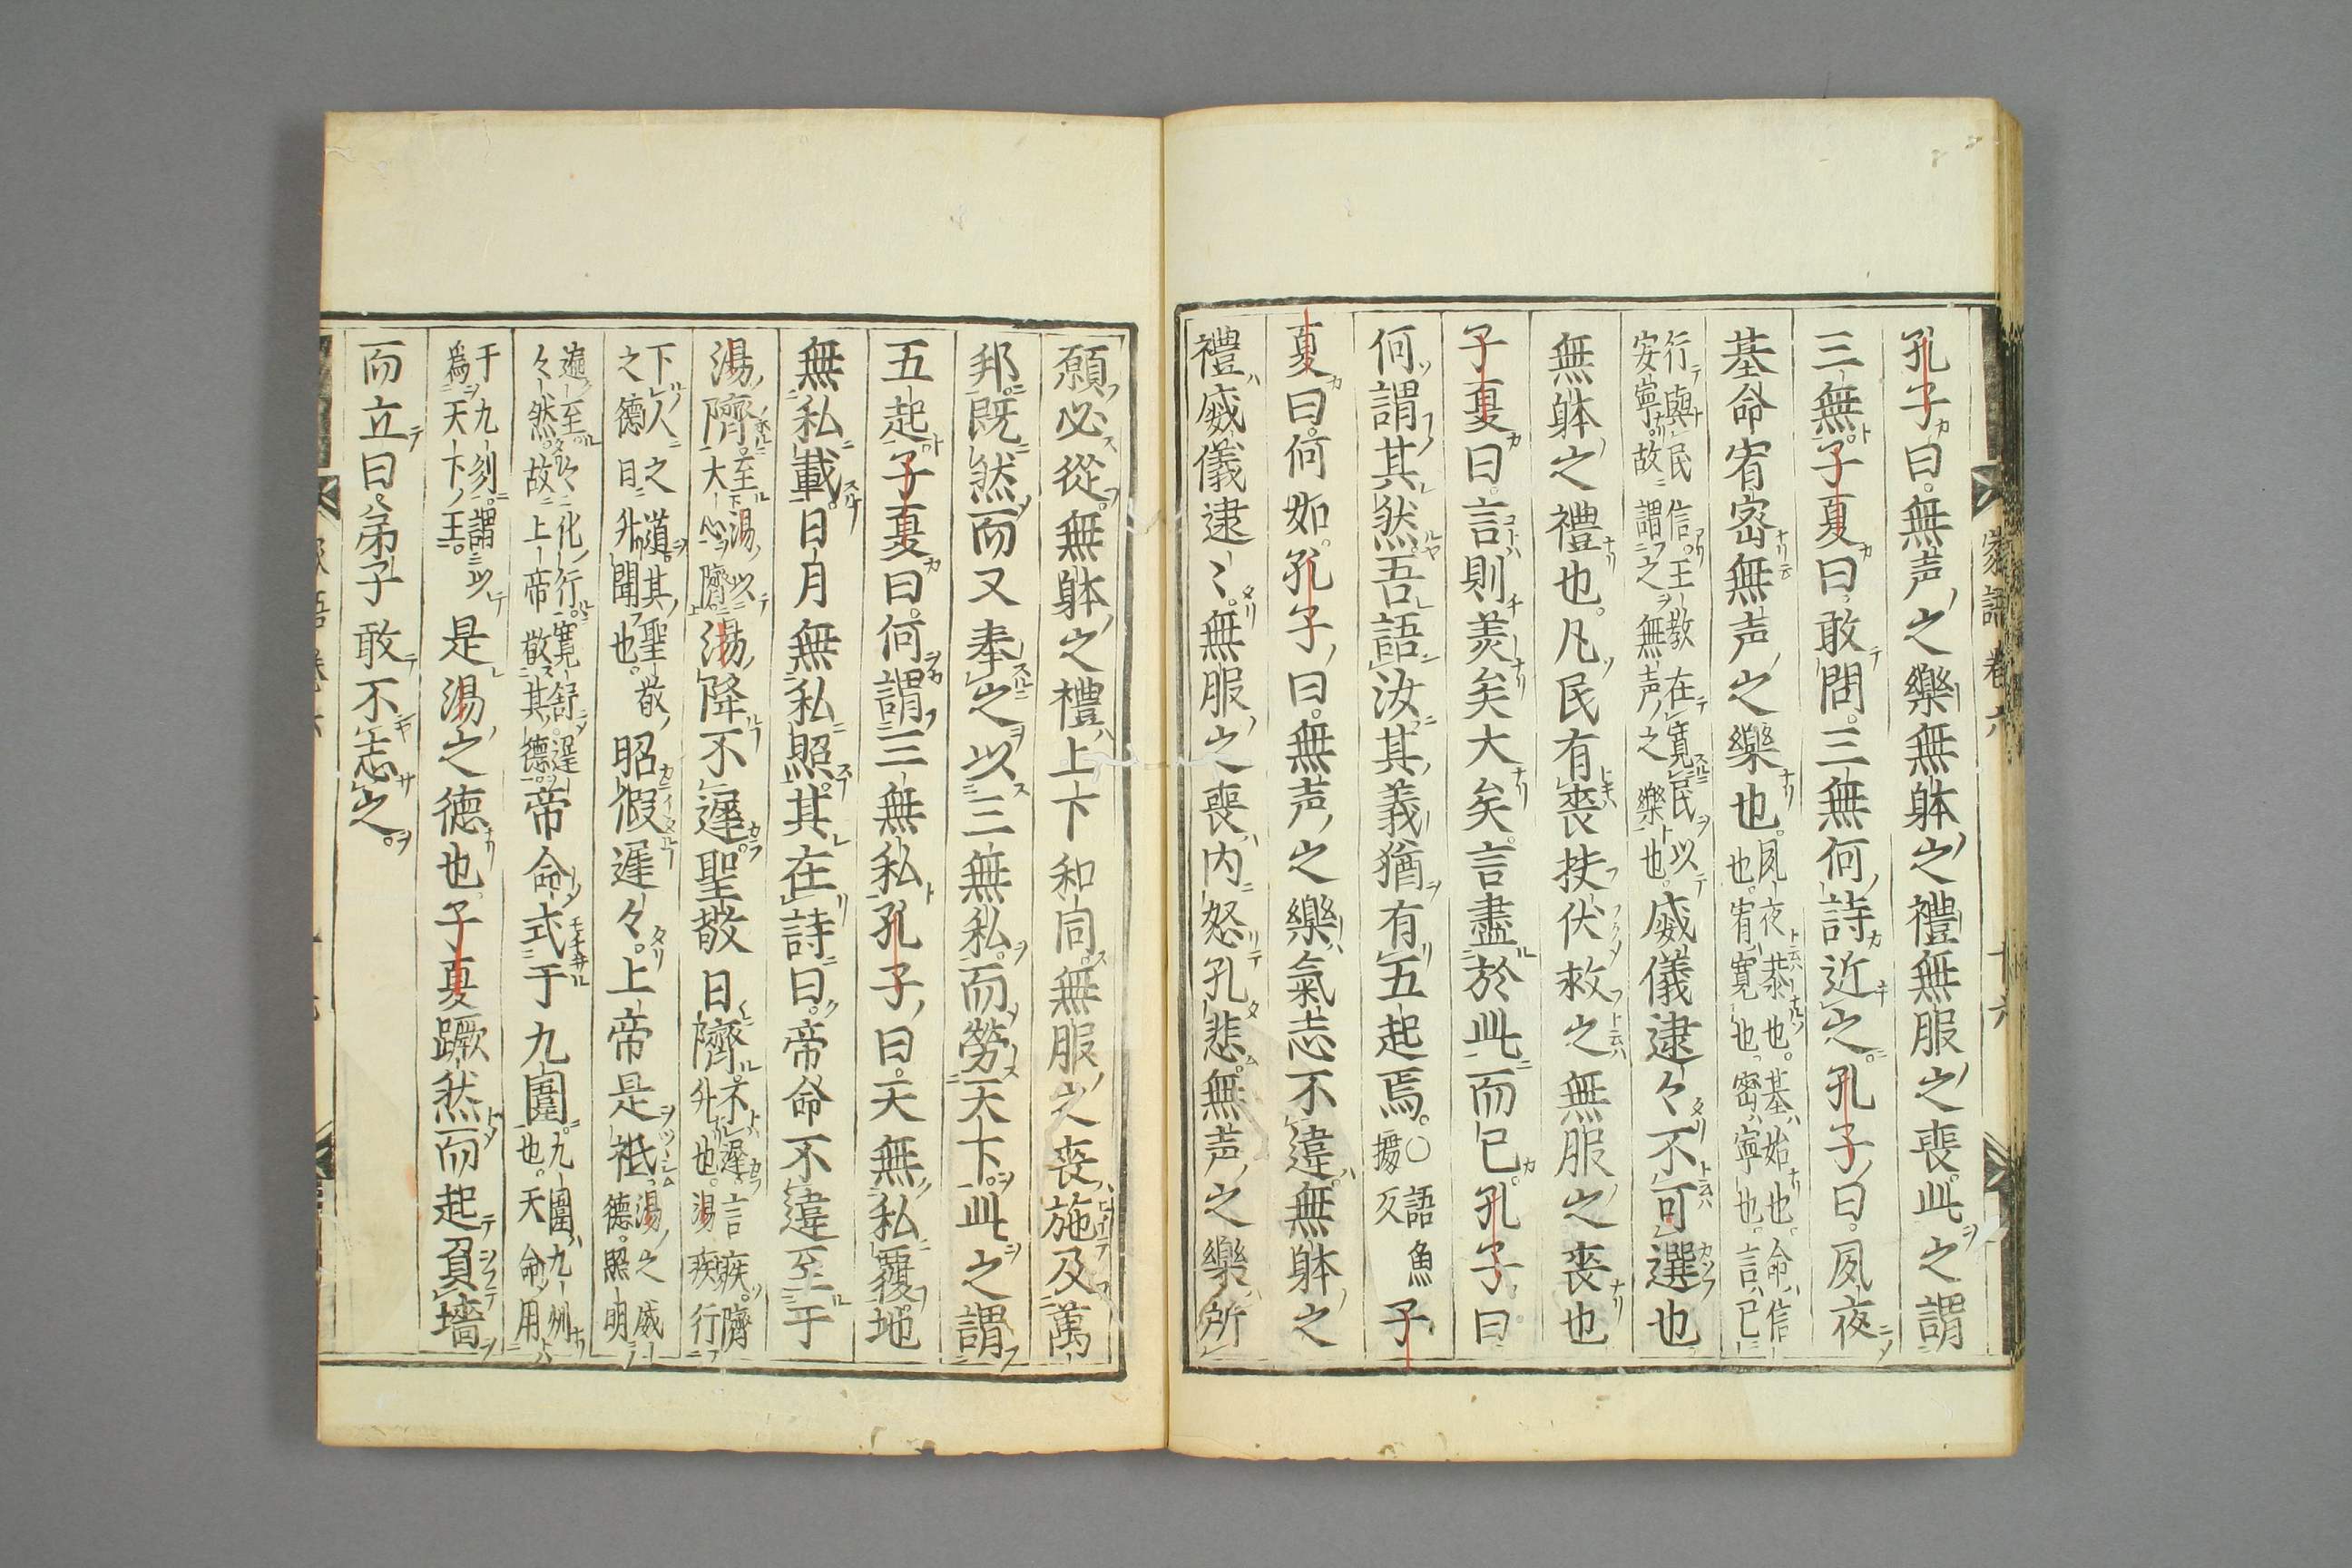 孔子曰無声之樂無躰之禮無服之喪此之謂
三無子夏曰敢問三無何詩近之孔子曰夙夜
基命宥密無声之樂也夙夜恭也基始也命信也宥寬也密寧也言已
行與民信王教在寬民以安寧故謂之無声之樂也威儀逮々不可選也
無躰之禮也凡民有喪扶伏救之無服之喪也
子夏曰言則美矣大矣言盡於此而已孔子曰
何謂其然吾語汝其義猶有五起焉○語魚據反子
夏曰何如孔子曰無声之樂氣志不違無躰之
禮威儀逮〻無服之喪内怒孔悲無声之樂所
願必從無躰之禮上下和同無服之喪施及萬
邦既然而又奉之以三無私而勞天下此之謂
五起子夏曰何謂三無私孔子曰天無私覆地
無私載日月無私照其在詩曰帝命不違至于
湯隮至湯以大心隮湯降不遲聖敬日隮不遲言疾隮升也湯疾行
下人之道其聖敬之德日升聞也昭假遲々上帝是祗湯之威德照明
遍至化行寬舒遲々然故上帝敬其德帝命式于九圍九圍九州也天命用
于九刻謂以爲天下王是湯之德也子夏蹶然而起負墻
而立曰弟子敢不志之
家語卷六 十六